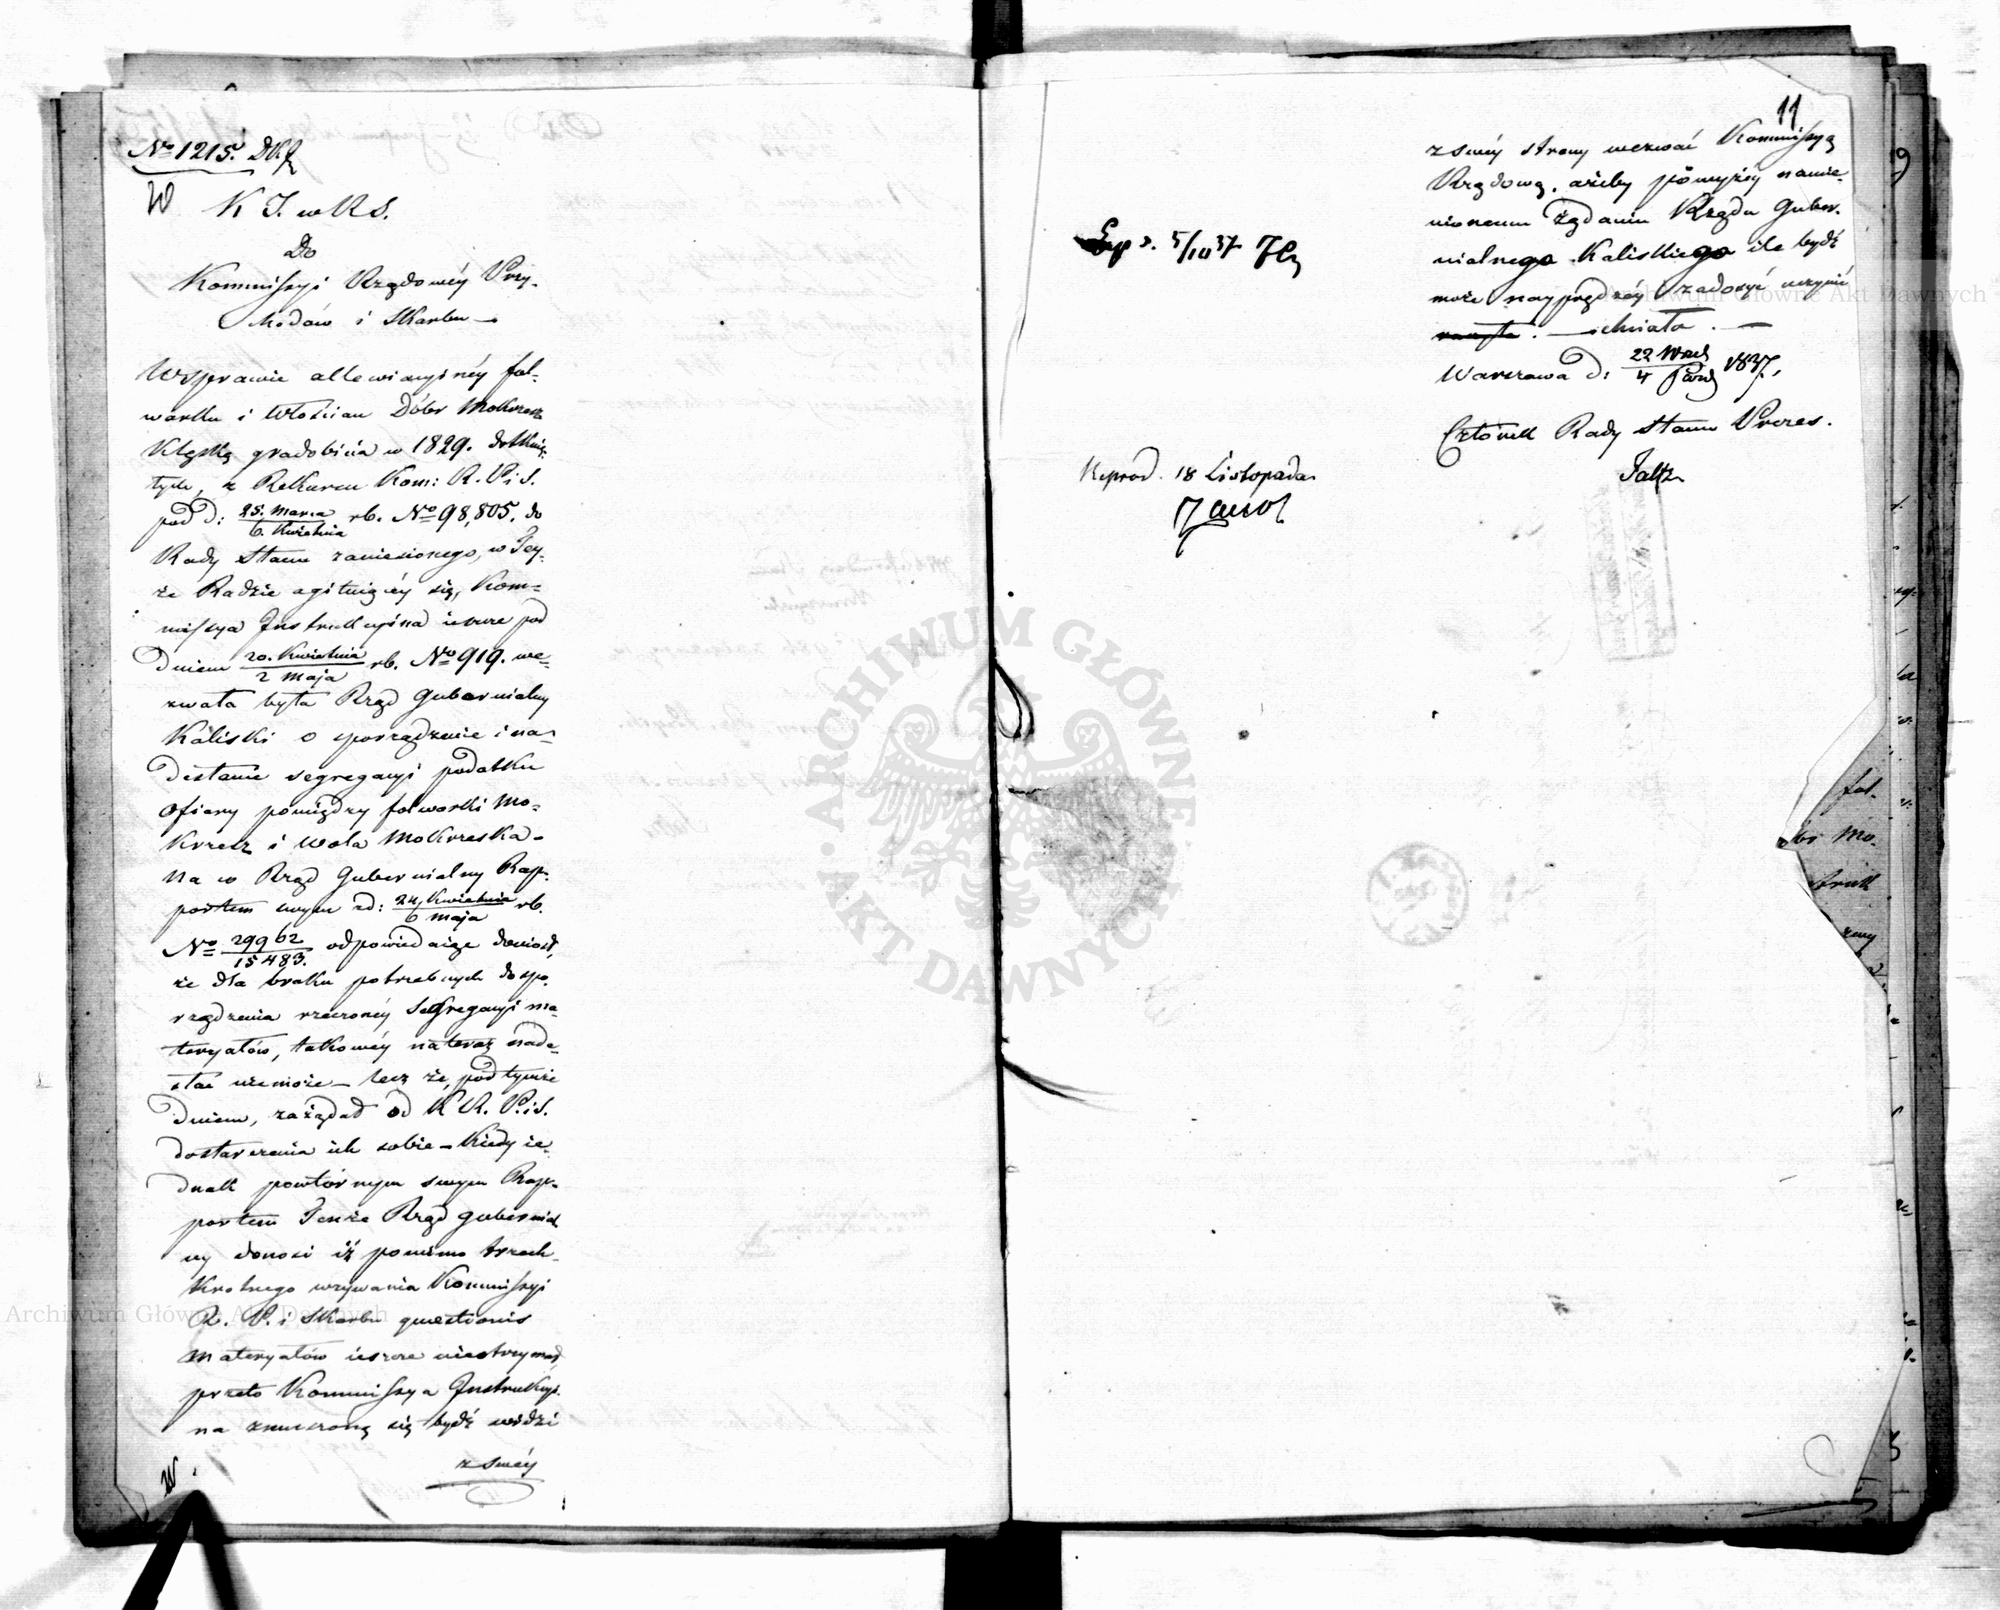 No 1215. DKP
W
K I. w RS.
Do
Kommissyi Rządowéy Przy-
chodów i Skarbu —
W sprawie allewiacyinéy fol-
warku i Włościan Dóbr Mokrzesz
Klęską gradobicia w 1829. dotknię-
tych, z Rekursu Kom: R. P. i S.
pod d: 25. Marca / 6. Kwietnia rb. No 98,805. do
Rady Stanu zaniesionego, w Tey-
że Radzie agituiącéy się, Kom-
missya Instrukcyina ieszcze pod
dniem 20. Kwietnia / 2 Maja rb. No 919. we-
zwała była Rząd Gubernialny
Kaliski o sporządzenie i na-
desłanie segregacyi podatku
ofiary pomiędzy folwarki Mo-
krzesz i Wola Mokrzeska –
Na co Rząd Gubernialny Rap-
portem swym z d: 24 Kwietnia / 6 Maja rb.
No 29962 / 15483. odpowiadaiąc doniosł,
że dla braku potrzebnych do spo-
rządzenia rzeczonéy segregacyi ma-
teryałów, takowéy na teraz nade-
słać nie może – lecz że, pod tymże
dniem, zażądał od K R. P. i S.
dostarczenia ich sobie – Kiedy ie-
dnak powtórnym swym Rap-
portem Tenże Rząd Gubernial
ny donosi iż pomimo trzech-
krotnego wzywania Kommissyi
R. P. i Skarbu quaestionis
materyałów ieszcze nieotrzymał,
przeto Kommissya Instrukcyi-
na zmuszoną się bydź widzi
z swéy
W
11
z swéy strony wezwać Kommissyą
Rządową, ażeby powyżéy namie-
nionemu żądaniu Rządu Guber-
nialnego Kaliskiego ile bydź
może nayprędzéy zadosyć uczynić
– ichciała. —
Warszawa d: 22 Wrześ / 4 Paźdz 1837.
Członek Rady Stanu Prezes.
Exp d. 5/10 37
Reprod. 18 Listopada
fol-
Mo-
Archiwum Główne Akt Dawnych
Archiwum Główne Akt Dawnych
ARCHIWUM GŁÓWNE
AKT DAWNYCH